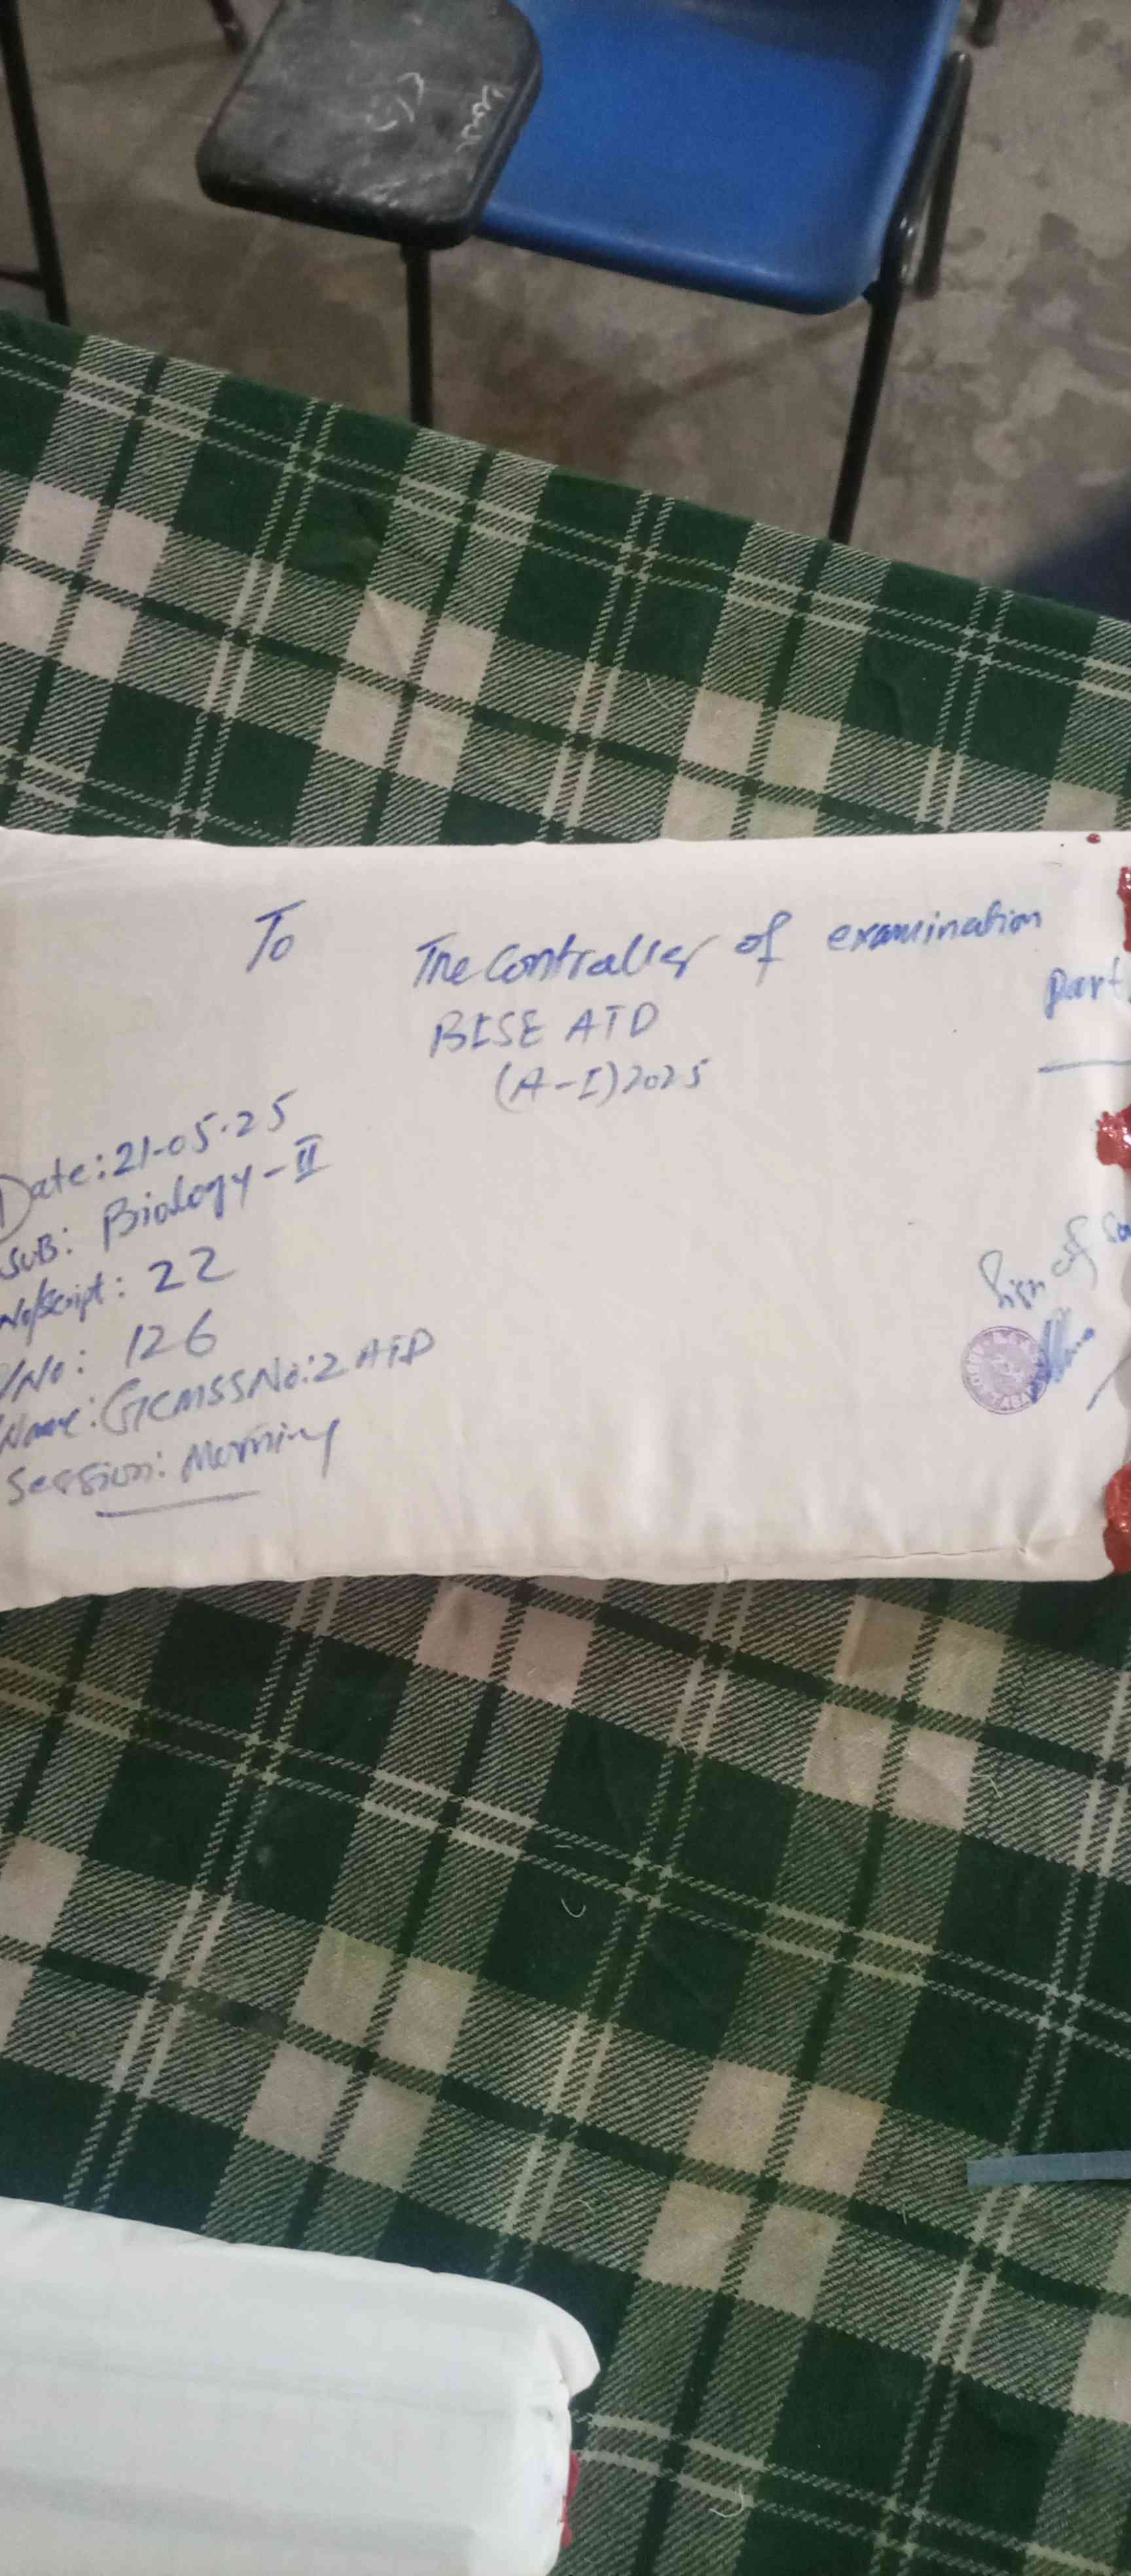 To
The Controller of examination
BISE ATD
(A-I) 2025
part
Date: 21-05-25
Sub: Biology-II
No/Script: 22
/No: 126
Name: GCMSSNo:2 ATD
Session: Morning
Sign of